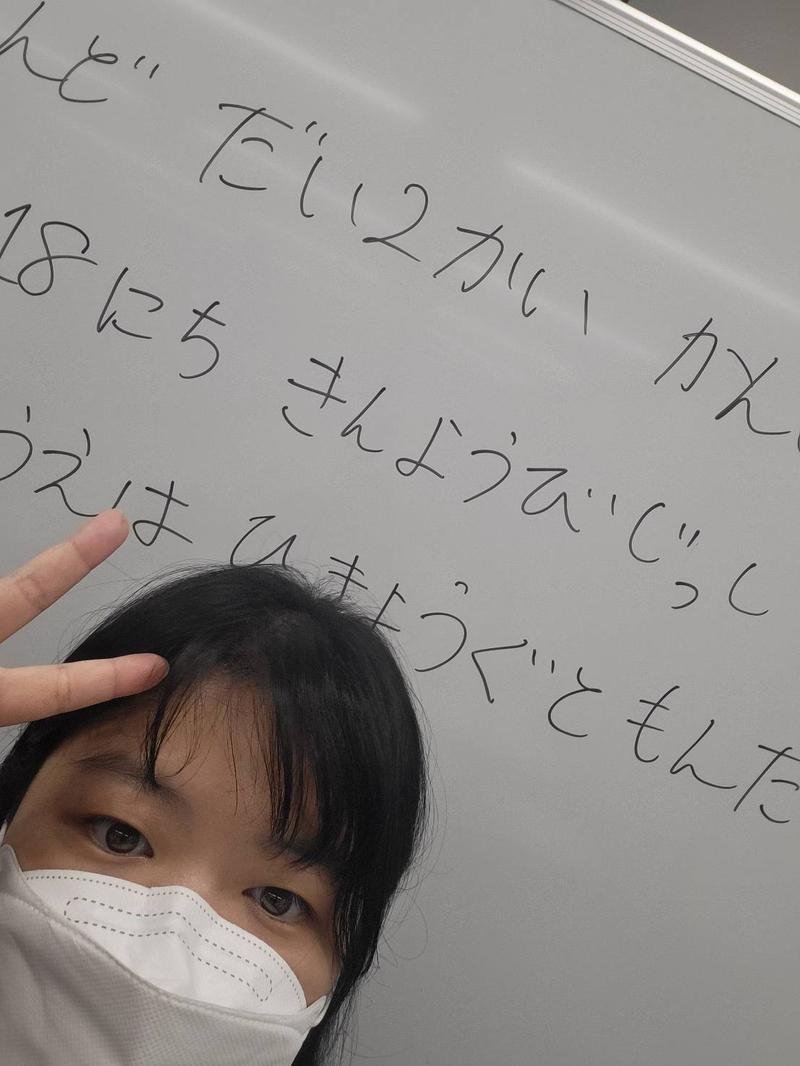 んど だい2かい かん
18にち きんようび じっし
うえは ひきょうぐともんだ